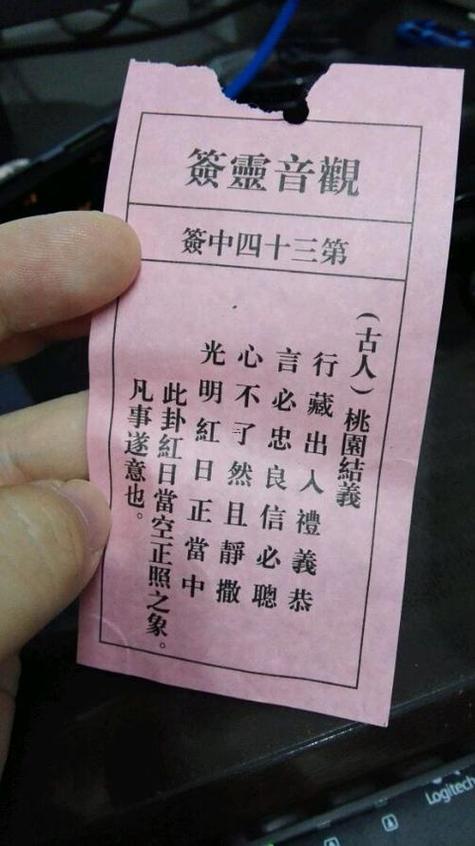 觀音靈簽
第三十四中簽
(古人)桃園結義
行藏出入禮義恭
言必忠良信必聰
心不了然且靜撒
光明紅日正當中
此卦紅日當空正照之象。
凡事遂意也。
Logitech